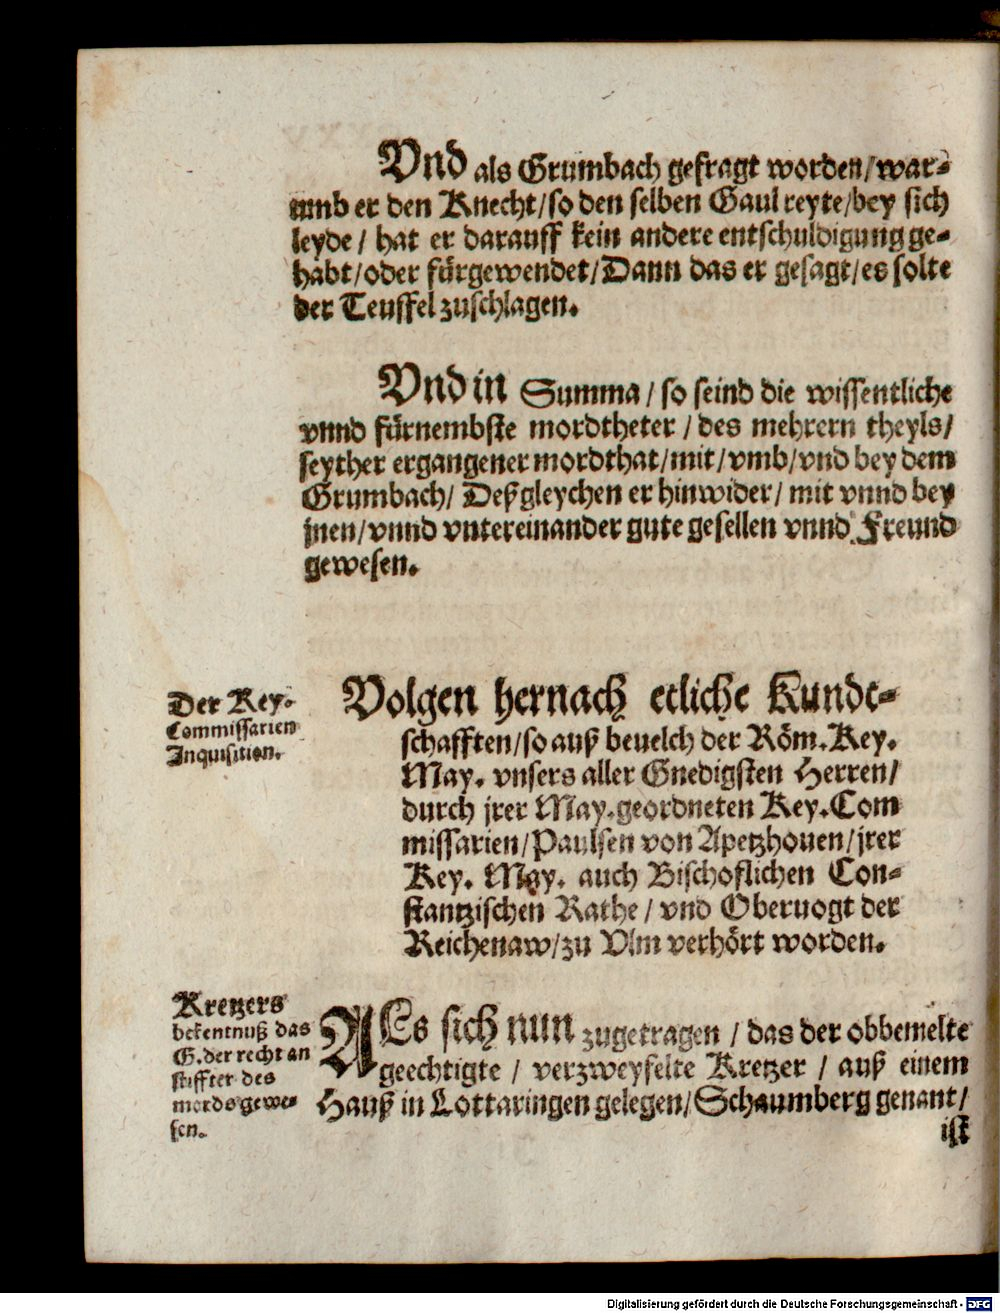 Vnd als Grumbach gefragt worden/war-
umb er den Knecht/so den selben Gaul reyte/bey sich
leyde/ hat er darauff kein andere entschuldigung ge-
habt/oder fürgewendet/Dann das er gesagt/es solte
der Teuffel zuschlagen.
Vnd in Summa/ so seind die wissentliche
vnnd fürnembste mordtheter/ des mehrern theyls/
seyther ergangener mordthat/mit/vmb/vnd bey dem
Grumbach/ Deßgleychen er hinwider/ mit vnnd bey
jnen/vnnd vntereinander gute gesellen vnnd Freund
gewesen.
Der Key.
Commissarien
Inquisition.
Volgen hernach etliche Kundt-
schafften/so auß beuelch der Röm.Key.
May. vnsers aller Gnedigsten Herren/
durch jrer May.geordneten Key.Com
missarien/Paulsen von Apetzhouen/jrer
Key. May. auch Bischoflichen Con-
stantzischen Rathe/ vnd Oberuogt der
Reichenaw/zu Vlm verhört worden.
Kretzers
bekentnuß das
G.der recht an
stiffter des
mords gewe-
sen.
ALs sich nun zugetragen/ das der obbemelte
geechtigte/ verzweyfelte Kretzer/ auß einem
Hauß in Lottaringen gelegen/Schaumberg genant/
ist
Digitalisierung gefördert durch die Deutsche Forschungsgemeinschaft - DFG